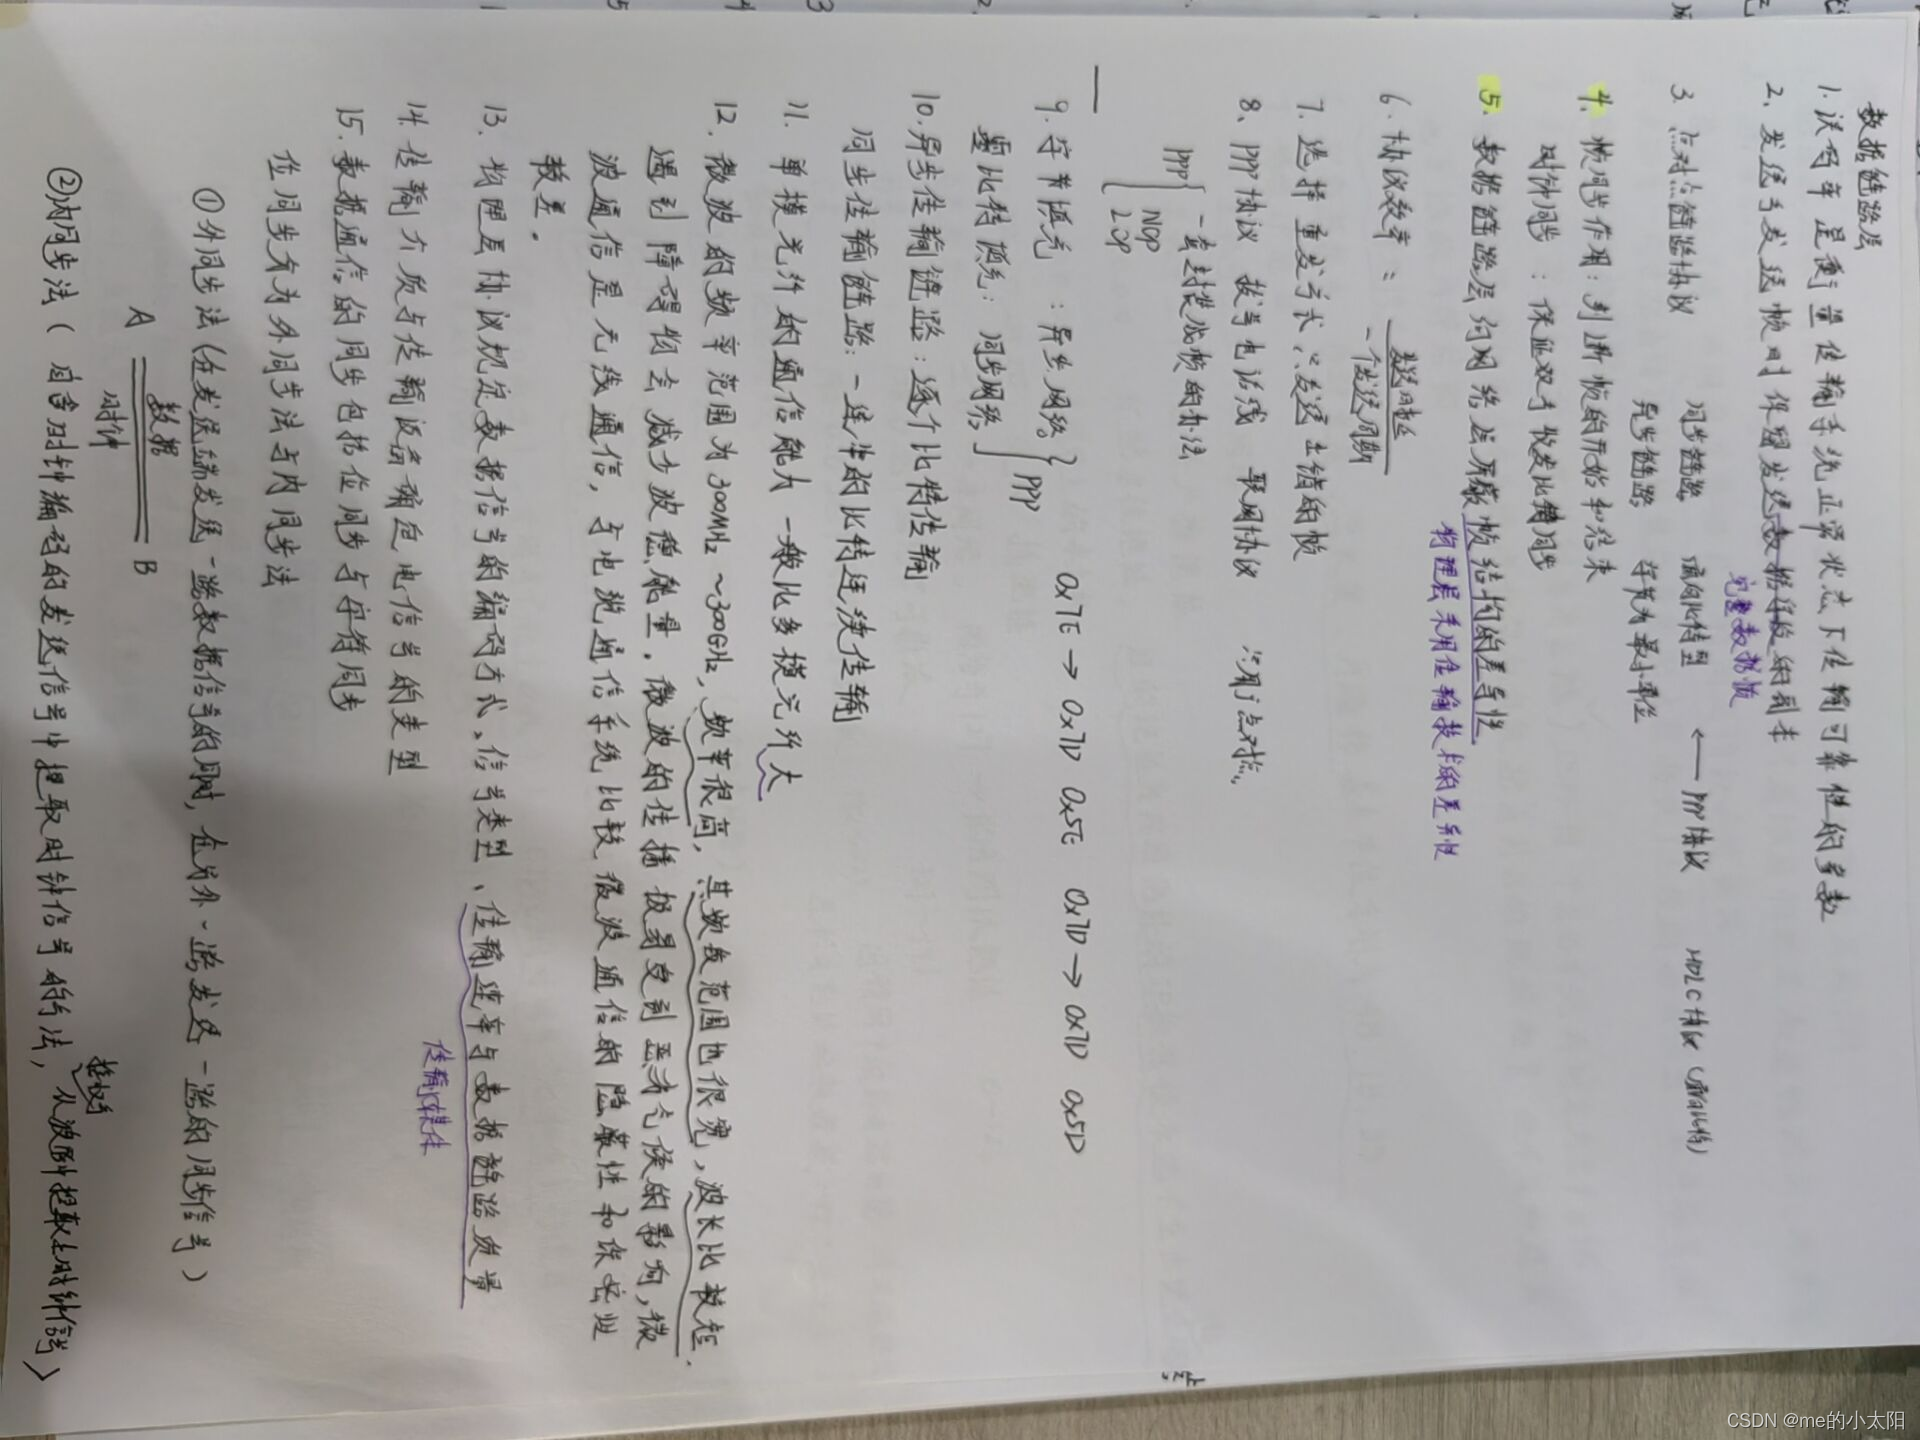 数据链路层
1. 误码率是衡量传输系统正常状态下传输可靠性的参数
2. 发送方发送帧时保留发送数据的副本
完整数据帧
3. 点对点链路协议 同步链路 面向比特型 ← PPP协议 HDLC协议
异步链路 字节为最小单位
4. 帧同步作用:判断帧的开始和结束
时钟同步:保证双方收发比特同步
5. 数据链路层向网络层屏蔽帧结构的差异性
物理层采用传输技术的差异性
6. 协议效率: 发送时延
一个发送周期
7. 选择重发方式,只发送出错的帧
8、PPP协议 拨号电话线 联网协议 只用于点对点、
PPP { 一套封装成帧的办法
NCP
LCP
9. 字节填充:异步网络 0x7E → 0x7D 0x5E 0x7D → 0x7D 0x5D
零比特填充:同步网络 } PPP
10. 异步传输链路:逐个比特传输
同步传输链路:一连串的比特连续传输
11. 单模光纤的通信能力一般比多模光纤大
12. 微波的频率范围为300MHz~300GHz,频率很高,其频段范围也很宽,波长比较短,
遇到障碍物会减少波 能量,微波的传播极易受到恶劣气候的影响,微
波通信是无线通信,与电缆通信系统比较,微波通信的隐蔽性和保密性
较差。
13. 物理层协议规定数据信号的编码方式、信号类型、传输速率与数据链路质量
传输媒体
14. 传输介质与传输设备确定电信号的类型
15. 数据通信的同步包括位同步与字符同步
位同步分为外同步法与内同步法
①外同步法(在发送端发送一路数据信号的同时,在另外一路发送一路的同步信号)
A 数据 B
时钟
②内同步法(自含时钟编码的发送信号中提取时钟信号的方法,从波形中提取出时钟信号)
接收方